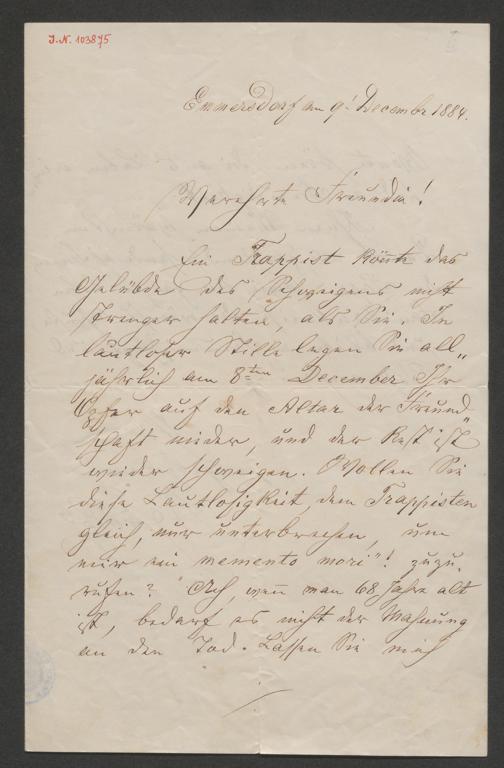 J.N. 103875
Emmersdorf am 9' Decembr 1884.
Verehrte Freundin!
Ein Trappist könte das
Gelübde des Schweigens nicht
strenger halten, als Sie. In
lautloser Stille legen Sie all„
jährlich am 8ten December Ihr
Opfer auf den Altar der Freund„
schaft nieder, und der Rest ist
wieder schweigen. Wollen Sie
diese Lautlosigkeit, dem Trappisten
gleich, nur unterbrechen, um
mir ein „memento mori"! zuzu„
rufen? Ach, wen̄ man 68 Jahre alt
ist, bedarf es nicht der Mahnung
an den Tod. Lassen Sie mich
./.